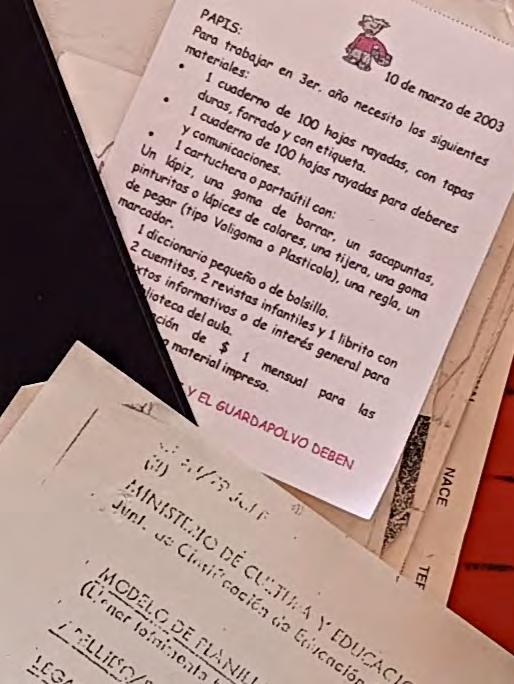 PAPIS:
10 de marzo de 2003
Para trabajar en 3er. año necesito los siguientes
materiales:
• 1 cuaderno de 100 hojas rayadas, con tapas
duras, forrado y con etiqueta.
• 1 cuaderno de 100 hojas rayadas para deberes
y comunicaciones.
• 1 cartuchera o portaútil con:
Un lápiz, una goma de borrar, un sacapuntas,
pinturitas o lápices de colores, una tijera, una goma
de pegar (tipo Voligoma o Plasticola), una regla, un
marcador.
1 diccionario pequeño o de bolsillo.
2 cuentitos, 2 revistas infantiles y 1 librito con
xtos informativos o de interés general para
blioteca del aula.
ción de $ 1 mensual para las
o material impreso.
Y EL GUARDAPOLVO DEBEN
NACE
MINISTERIO DE CULTURA Y EDUCACIO
Junta de Clasificación de Educación
MODELO DE PLANILL